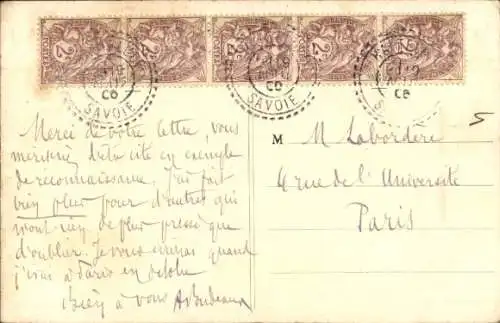 SAVOIE
06
SAVOIE
06
Merci de votre lettre, vous
méritez d'être cité en exemple
de reconnaissance, j'ai fait
bien plus pour d'autres qui
n'ont rien de plus pressé que
d'oublier. Je vous écrirai quand
j'irai à Paris en octobre
Bien à vous
M M Labordère
4 rue de l'Université
Paris
5